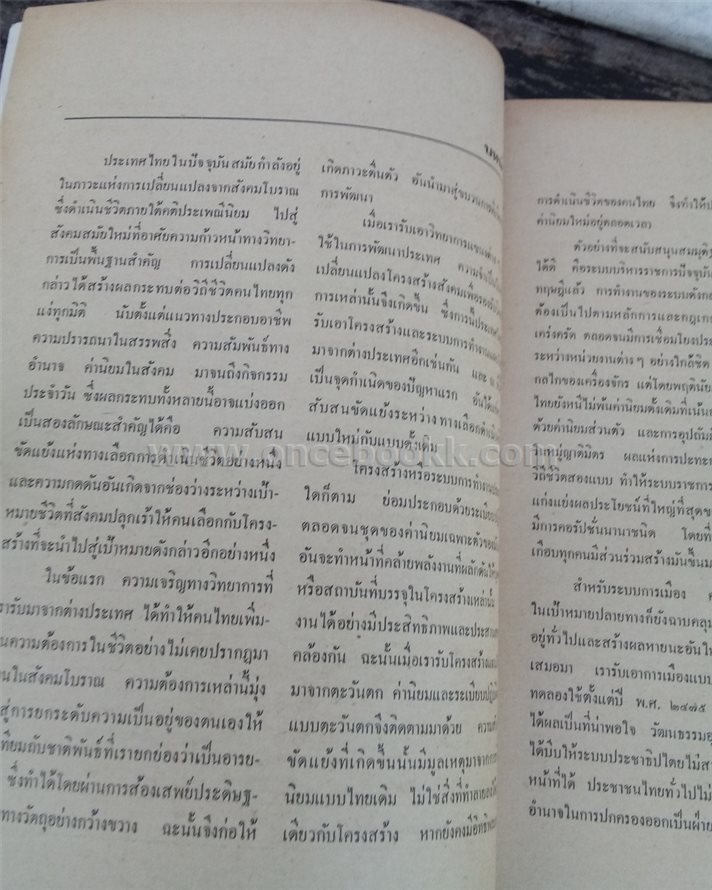 ประเทศไทยในปัจจุบันสมัยกำลังอยู่
ในภาวะแห่งการเปลี่ยนแปลงจากสังคมโบราณ
ซึ่งดำเนินชีวิตภายใต้คติประเพณีนิยม ไปสู่
สังคมสมัยใหม่ที่อาศัยความก้าวหน้าทางวิทยา-
การเป็นพื้นฐานสำคัญ การเปลี่ยนแปลงดัง
กล่าวได้สร้างผลกระทบต่อวิถีชีวิตคนไทยทุก
แง่ทุกมิติ นับตั้งแต่แนวทางประกอบอาชีพ
ความปรารถนาในสรรพสิ่ง ความสัมพันธ์ทาง
อำนาจ ค่านิยมในสังคม มาจนถึงกิจกรรม
ประจำวัน ซึ่งผลกระทบทั้งหลายนี้อาจแบ่งออก
เป็นสองลักษณะสำคัญได้คือ ความสับสน
ขัดแย้งแห่งทางเลือกการดำเนินชีวิตอย่างหนึ่ง
และความกดดันอันเกิดจากช่องว่างระหว่างเป้า-
หมายชีวิตที่สังคมปลุกเร้าให้คนเลือกกับโครง-
สร้างที่จะนำไปสู่เป้าหมายดังกล่าวอีกอย่างหนึ่ง
ในข้อแรก ความเจริญทางวิทยาการที่
เรารับมาจากต่างประเทศ ได้ทำให้คนไทยเพิ่ม-
ความต้องการในชีวิตอย่างไม่เคยปรากฏมา
ในสังคมโบราณ ความต้องการเหล่านี้มุ่ง
สู่การยกระดับความเป็นอยู่ของตนเองให้
เทียมกับชาติพันธ์ที่เรายกย่องว่าเป็นอารย-
ซึ่งทำได้โดยผ่านการส้องเสพย์ประดิษฐ-
ทางวัตถุอย่างกว้างขวาง ฉะนั้นจึงก่อให้
เกิดภาวะตื่นตัว อันนำมาสู่ขบวนการ
การพัฒนา
เมื่อเรารับเอาวิทยาการแขนงต่าง ๆ
ใช้ในการพัฒนาประเทศ ความจำเป็น
เปลี่ยนแปลงโครงสร้างสังคมเพื่อรองรับ
การเหล่านั้นจึงเกิดขึ้น ซึ่งการนี้
รับเอาโครงสร้างและระบบการทำงาน
มาจากต่างประเทศอีกเช่นกัน และ ณ
เป็นจุดกำเนิดของปัญหาแรก อันได้แก่
สับสนขัดแย้งระหว่าง ทางเลือกดำเนิน
แบบใหม่กับแบบดั้งเดิม
โครงสร้างหรือระบบการทำงาน
ใดก็ตาม ย่อมประกอบด้วยระเบียบ
ตลอดจนชุดของค่านิยมเฉพาะตัวของ
อันจะทำหน้าที่คล้ายพลังงานที่ผลักดันให้
หรือสถาบันที่บรรจุในโครงสร้างเหล่านั้น
งานได้อย่างมีประสิทธิภาพและประสาน
คล้องกัน ฉะนั้นเมื่อเรารับโครงสร้าง
มาจากตะวันตก ค่านิยมและระเบียบปฏิบัติ
แบบตะวันตกจึงติดตามมาด้วย ความ
ขัดแย้งที่เกิดขึ้นนั้นมีมูลเหตุมาจากการ
นิยมแบบไทยเดิม ไม่ใช่สิ่งที่ทำลายลง
เดียวกับโครงสร้าง หากยังคงมีอิทธิพล
การดำเนินชีวิตของคนไทย ซึ่งทำให้
ค่านิยมใหม่อยู่ตลอดเวลา
ตัวอย่างที่จะสนับสนุนสมมุติฐาน
ได้ดี คือระบบบริหารราชการปัจจุบัน
ทฤษฎีแล้ว การทำงานของระบบดังกล่าว
ต้องเป็นไปตามหลักการและกฎเกณฑ์
เคร่งครัด ตลอดจนมีการเชื่อมโยงประสาน
ระหว่างหน่วยงานต่างๆ อย่างใกล้ชิด
กลไกของเครื่องจักร แต่โดยพฤตินัย
ไทยยังหนีไม่พ้นค่านิยมดั้งเดิมที่เน้น
ด้วยค่านิยมส่วนตัว และการอุปถัมภ์
ญาติมิตร ผลแห่งการปะทะ
วิถีชีวิตสองแบบ ทำให้ระบบราชการ
แก่งแย่งผลประโยชน์ที่ใหญ่ที่สุด
มีการคอรัปชั่นนานาชนิด โดยที่
เกือบทุกคนมีส่วนร่วมสร้างมันขึ้น
สำหรับระบบการเมือง
ในเป้าหมายปลายทางก็ยังฉาบคลุม
อยู่ทั่วไปและสร้างผลหายนะอัน
เสมอมา เรารับเอาการเมืองแบบ
ทดลองใช้ตั้งแต่ปี พ.ศ. ๒๔๗๕
ได้ผลเป็นที่น่าพอใจ วัฒนธรรม
ได้บีบให้ระบบประชาธิปไตยไม่
หน้าที่ได้ ประชาชนไทยทั่วไปไม่
อำนาจในการปกครองออกเป็นฝ่าย
www.oncebookk.com